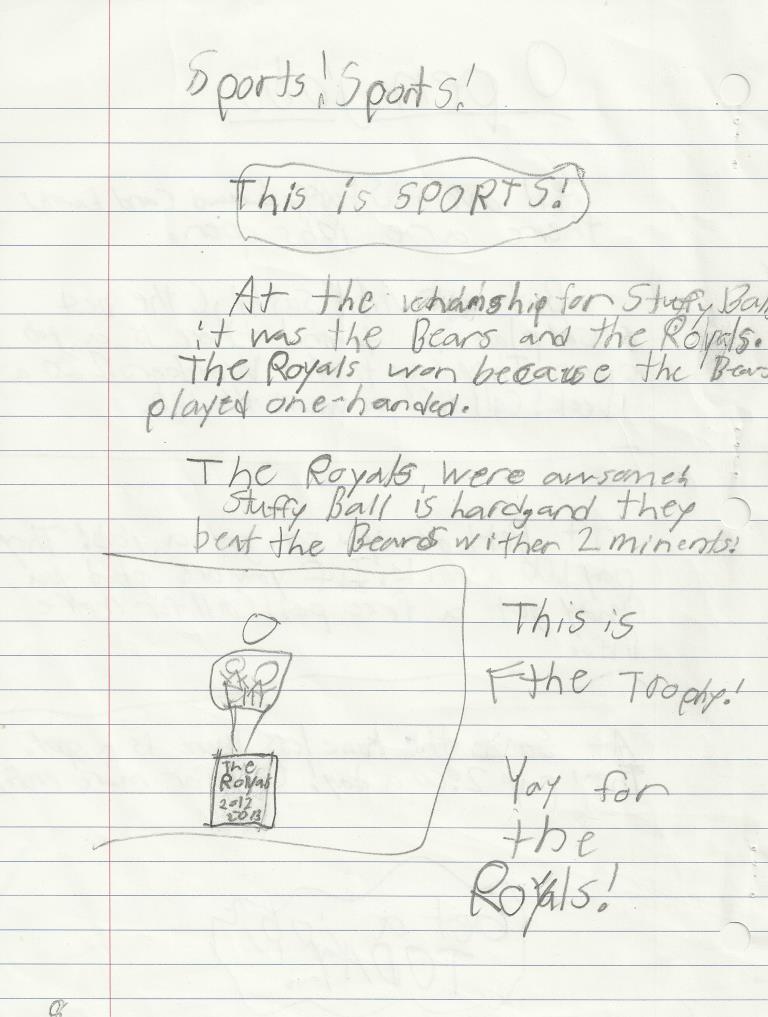 Sports! Sports!
This is SPORTS!
At the for Stuffy Ball
it was the Bears and the Royals.
The Royals won because the Bears
played one-handed.
The Royals were awsome
Stuffy Ball is hard and they
beat the Bears wither 2 minents!
This is
the Trophy!
The
Royals
2012
2013
Yay for
the
Royals!